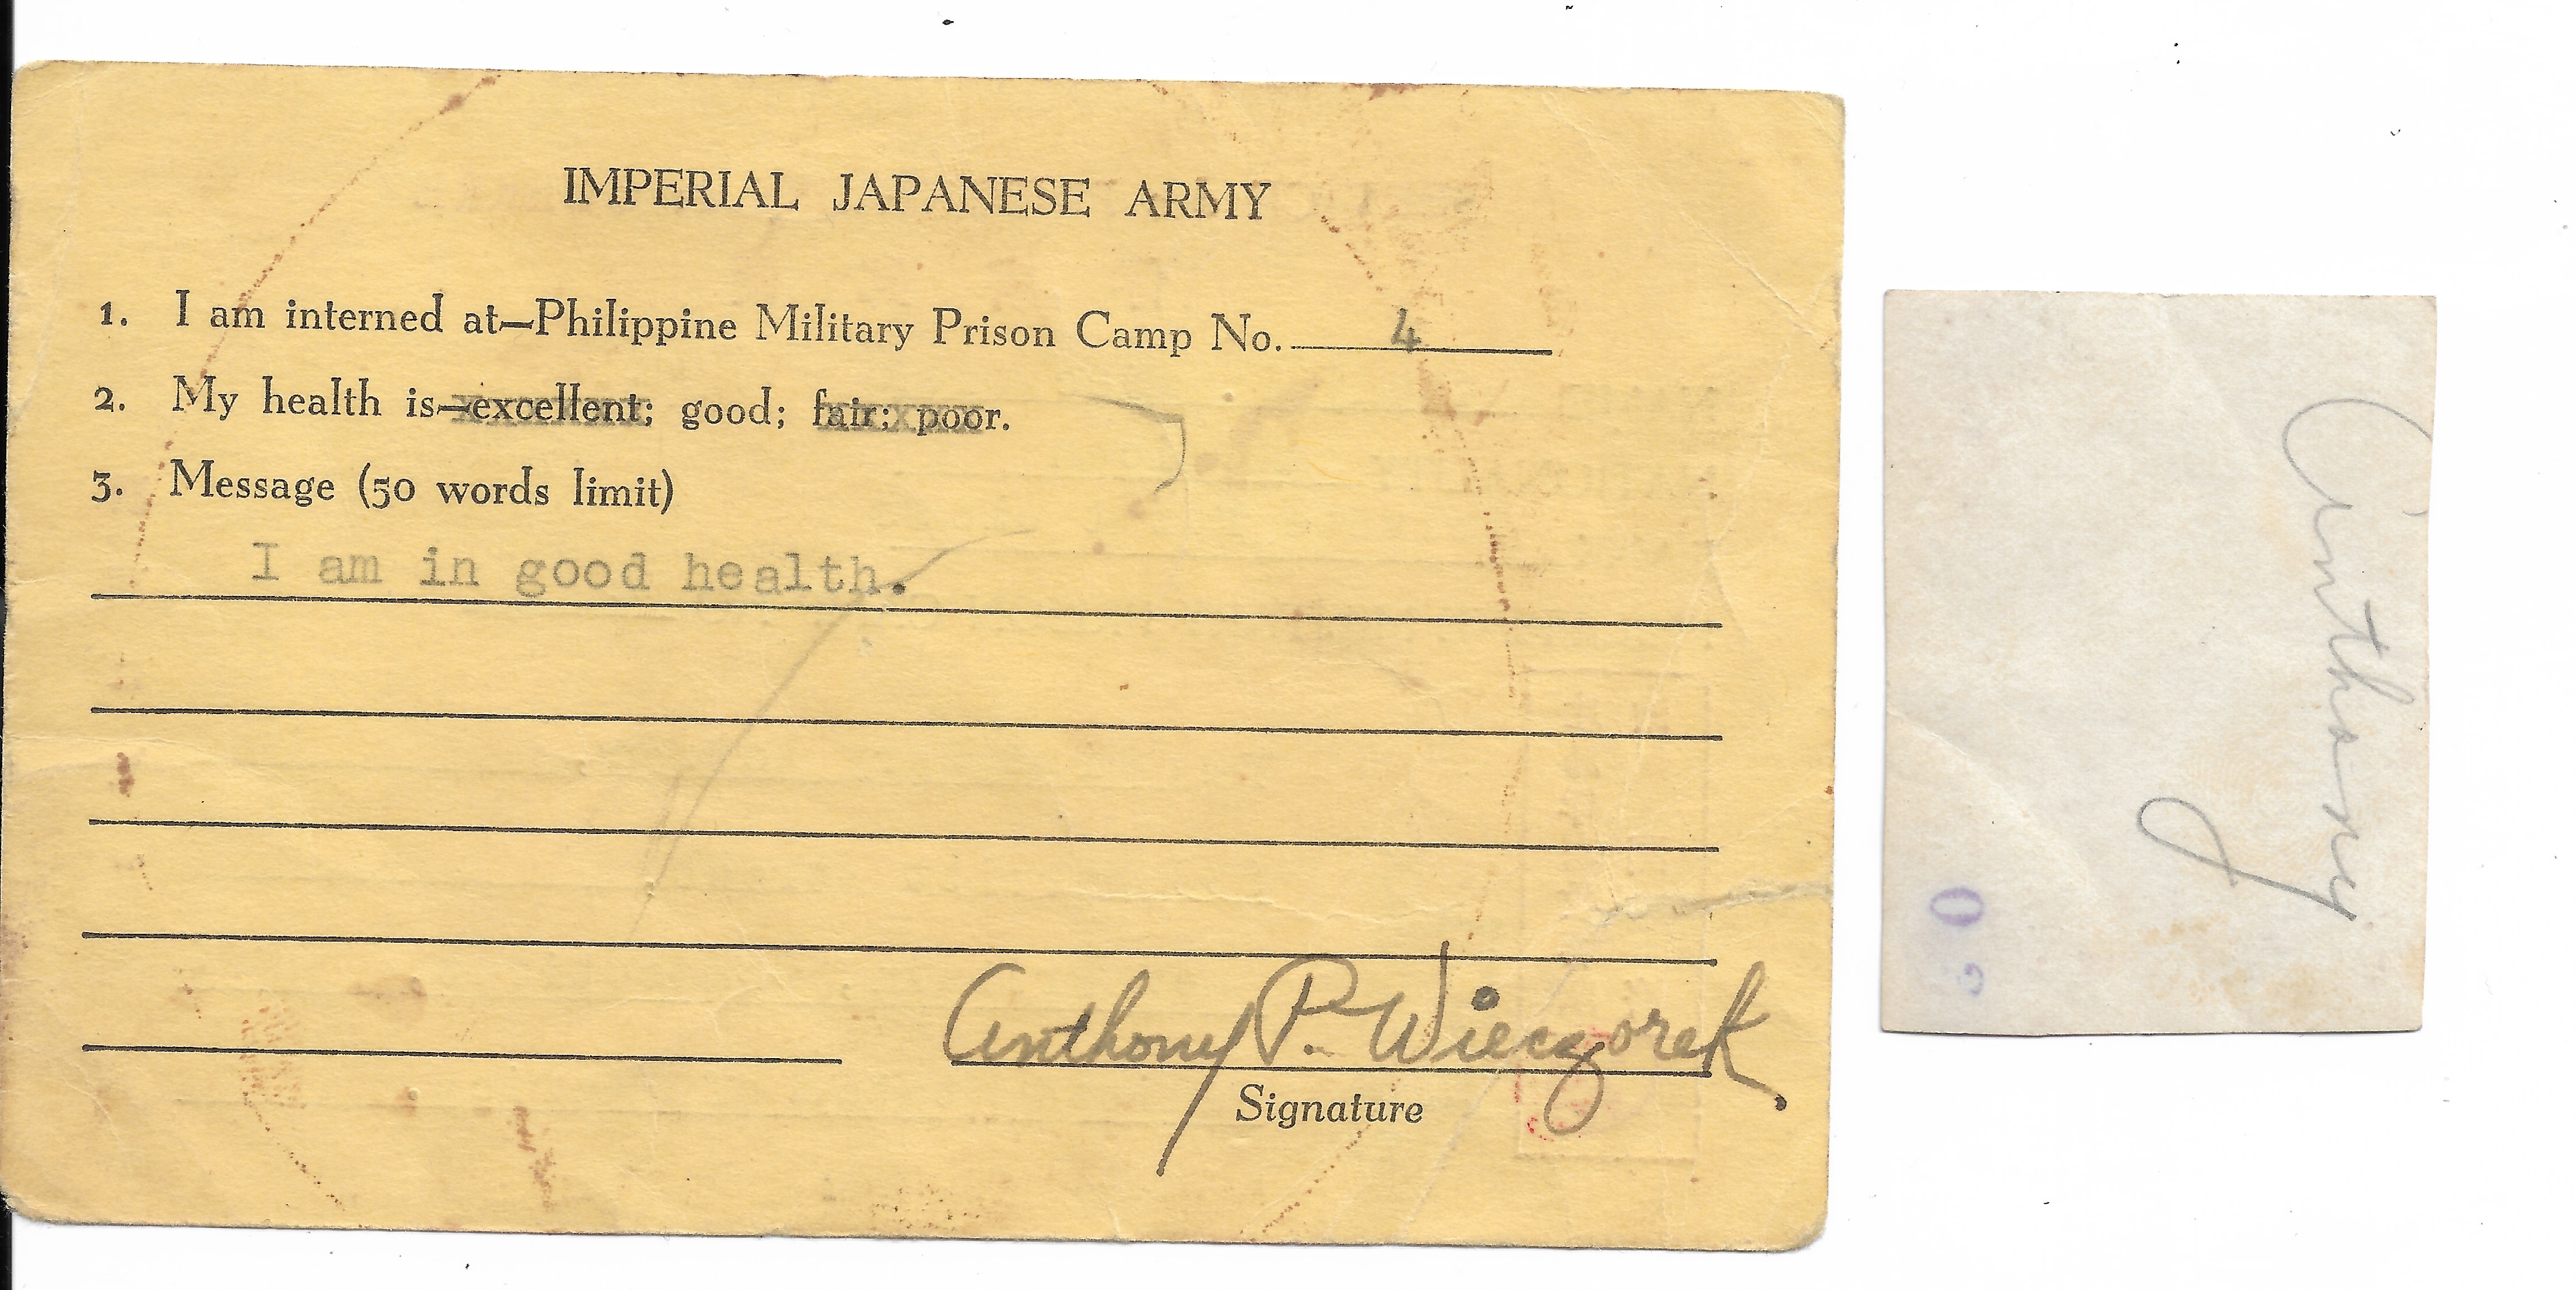 IMPERIAL JAPANESE ARMY
1. I am interned at—Philippine Military Prison Camp No. 4
2. My health is—excellent; good; fair; poor.
3. Message (50 words limit)
I am in good health.
Anthony P. Wieczorek
Signature
Anthony